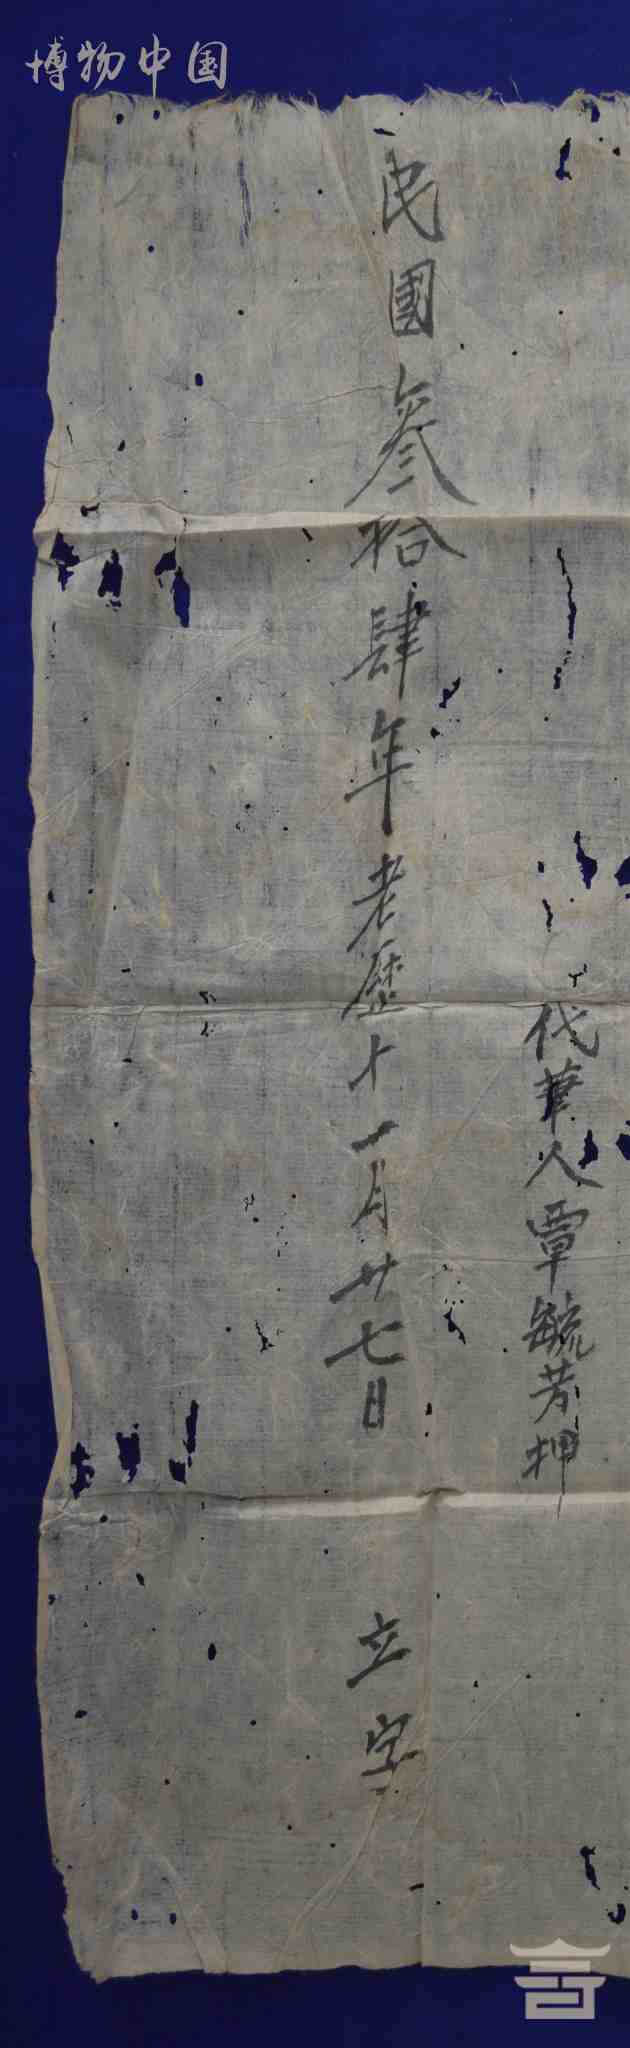 博物中国
代筆人覃毓芳押
民國叁拾肆年老歷十一月廿七日 立字